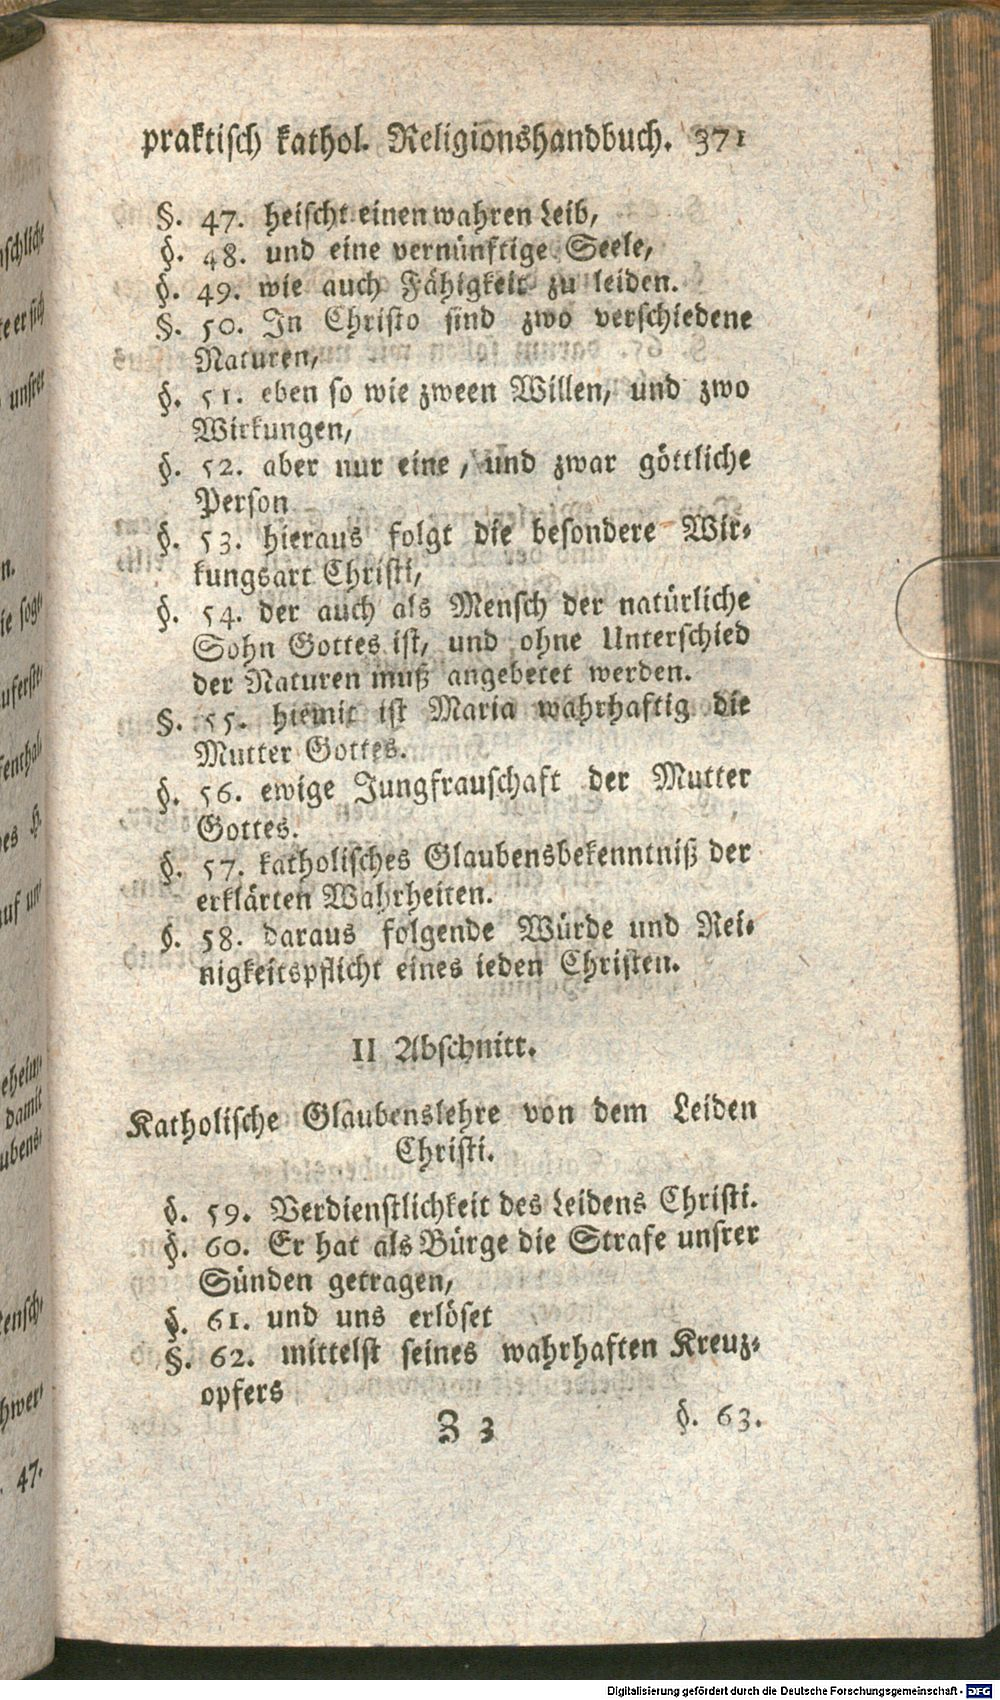 praktisch kathol. Religionshandbuch. 371
§. 47. heischt einen wahren Leib,
§. 48. und eine vernünftige Seele,
§. 49. wie auch Fähigkeit zu leiden.
§. 50. In Christo sind zwo verschiedene
Naturen,
§. 51. eben so wie zween Willen, und zwo
Wirkungen,
§. 52. aber nur eine, und zwar göttliche
Person
§. 53. hieraus folgt die besondere Wir-
kungsart Christi,
§. 54. der auch als Mensch der natürliche
Sohn Gottes ist, und ohne Unterschied
der Naturen muß angebetet werden.
§. 55. hiemit ist Maria wahrhaftig die
Mutter Gottes.
§. 56. ewige Jungfrauschaft der Mutter
Gottes.
§. 57. katholisches Glaubensbekenntniß der
erklärten Wahrheiten.
§. 58. daraus folgende Würde und Rei-
nigkeitspflicht eines ieden Christen.
II Abschnitt.
Katholische Glaubenslehre von dem Leiden
Christi.
§. 59. Verdienstlichkeit des Leidens Christi.
§. 60. Er hat als Bürge die Strafe unsrer
Sünden getragen,
§. 61. und uns erlöset
§. 62. mittelst seines wahrhaften Kreuz-
opfers
Z 3
§. 63.
47.
Digitalisierung gefördert durch die Deutsche Forschungsgemeinschaft - DFG